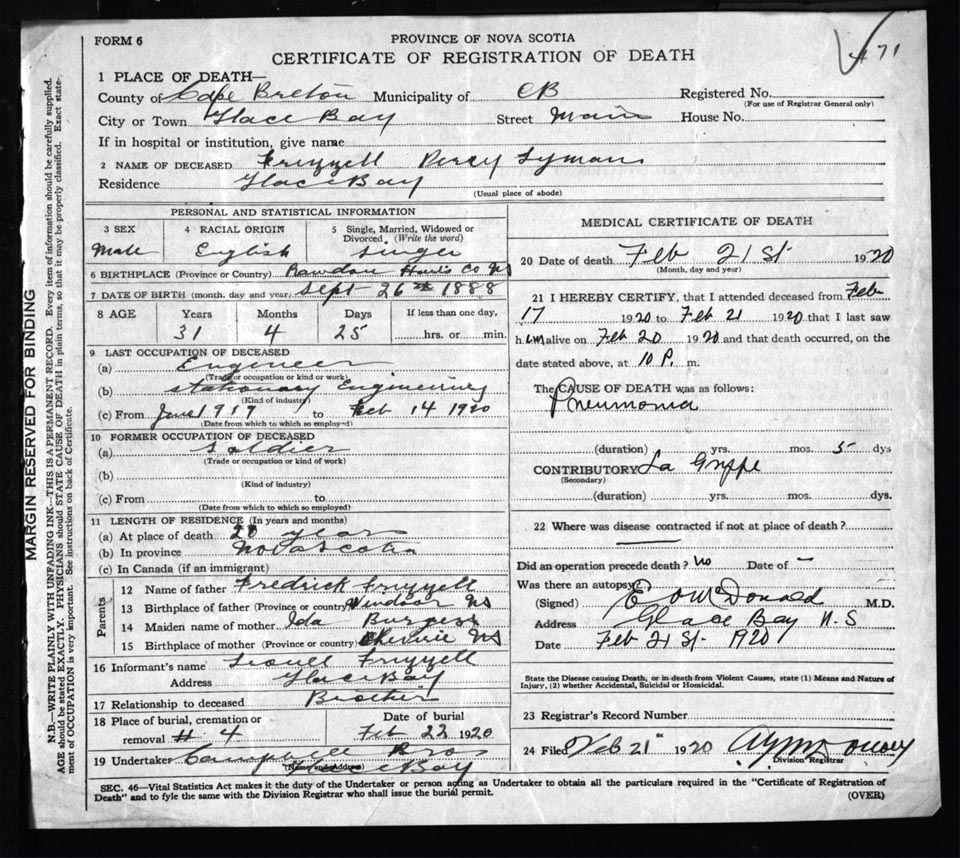 471
FORM 6
PROVINCE OF NOVA SCOTIA
CERTIFICATE OF REGISTRATION OF DEATH
MARGIN RESERVED FOR BINDING
N.B.—WRITE PLAINLY WITH UNFADING INK—THIS IS A PERMANENT RECORD. Every item of information should be carefully supplied.
AGE should be stated EXACTLY. PHYSICIANS should STATE CAUSE OF DEATH in plain terms, so that it may be properly classified. Exact state-
ment of OCCUPATION is very important. See instructions on back of Certificate.
1 PLACE OF DEATH—
County of Cape Breton Municipality of CB Registered No.
(For use of Registrar General only)
City or Town Glace Bay Street Main House No.
If in hospital or institution, give name
2 NAME OF DECEASED Frizzell Percy Lyman
Residence Glace Bay
(Usual place of abode)
PERSONAL AND STATISTICAL INFORMATION
3 SEX 4 RACIAL ORIGIN 5 Single, Married, Widowed or
Divorced, (Write the word)
Male English Single
6 BIRTHPLACE (Province or Country) Rawdon Hants Co NS
7 DATE OF BIRTH (month, day and year) Sept 26th 1888
8 AGE Years Months Days If less than one day,
31 4 25 hrs. or min.
9 LAST OCCUPATION OF DECEASED
(a) Engineer
(Trade or occupation or kind of work)
(b) Stationary Engineering
(Kind of industry)
(c) From June 1919 to Feb 14 1920
(Date from which to which so employed)
10 FORMER OCCUPATION OF DECEASED
(a) Soldier
(Trade or occupation or kind of work)
(b)
(Kind of industry)
(c) From to
(Date from which to which so employed)
11 LENGTH OF RESIDENCE (In years and months)
(a) At place of death 20 year
(b) In province Nova Scotia
(c) In Canada (if an immigrant)
Parents
12 Name of father Fredrick Frizzell
13 Birthplace of father (Province or country) Windsor NS
14 Maiden name of mother Ida Burgess
15 Birthplace of mother (Province or country) Cheverie NS
16 Informant's name Lionell Frizzell
Address Glace Bay
17 Relationship to deceased Brother
18 Place of burial, cremation or Date of burial
removal # 4 Feb 22 1920
19 Undertaker Campbell Bros
(Name and address) Glace Bay
MEDICAL CERTIFICATE OF DEATH
20 Date of death Feb 21 St. 1920
(Month, day and year)
21 I HEREBY CERTIFY, that I attended deceased from Feb
17 1920 to Feb 21 1920 that I last saw
him alive on Feb 20 1920 and that death occurred, on the
date stated above, at 10 P. m.
The CAUSE OF DEATH was as follows:
Pneumonia
(duration) yrs. mos. 5 dys
CONTRIBUTORY La Grippe
(Secondary)
(duration) yrs. mos. dys.
22 Where was disease contracted if not at place of death?
Did an operation precede death? No Date of –
Was there an autopsy
(Signed) McDonald M.D.
Address Glace Bay N.S
Date Feb 21 St. 1920
State the Disease causing Death, or in death from Violent Causes, state (1) Means and Nature of
Injury, (2) whether Accidental, Suicidal or Homicidal.
23 Registrar's Record Number
24 Filed Feb 21st 1920
Division Registrar
SEC. 46—Vital Statistics Act makes it the duty of the Undertaker or person acting as Undertaker to obtain all the particulars required in the "Certificate of Registration of
Death" and to fyle the same with the Division Registrar who shall issue the burial permit. (OVER)